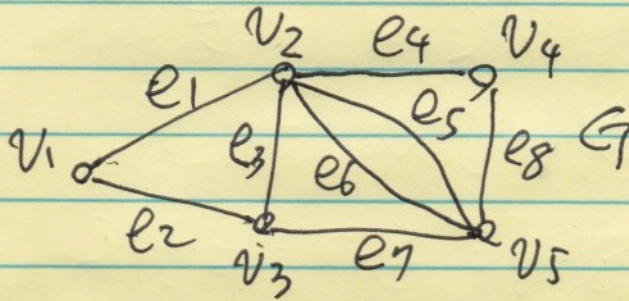 v2 e4 v4
e1 e5
v1 e3 e6 e8 G
e2 e7 v5
v3